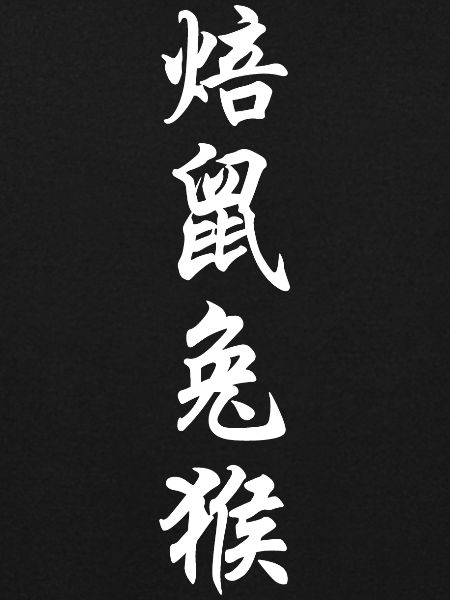 焙鼠兔猴